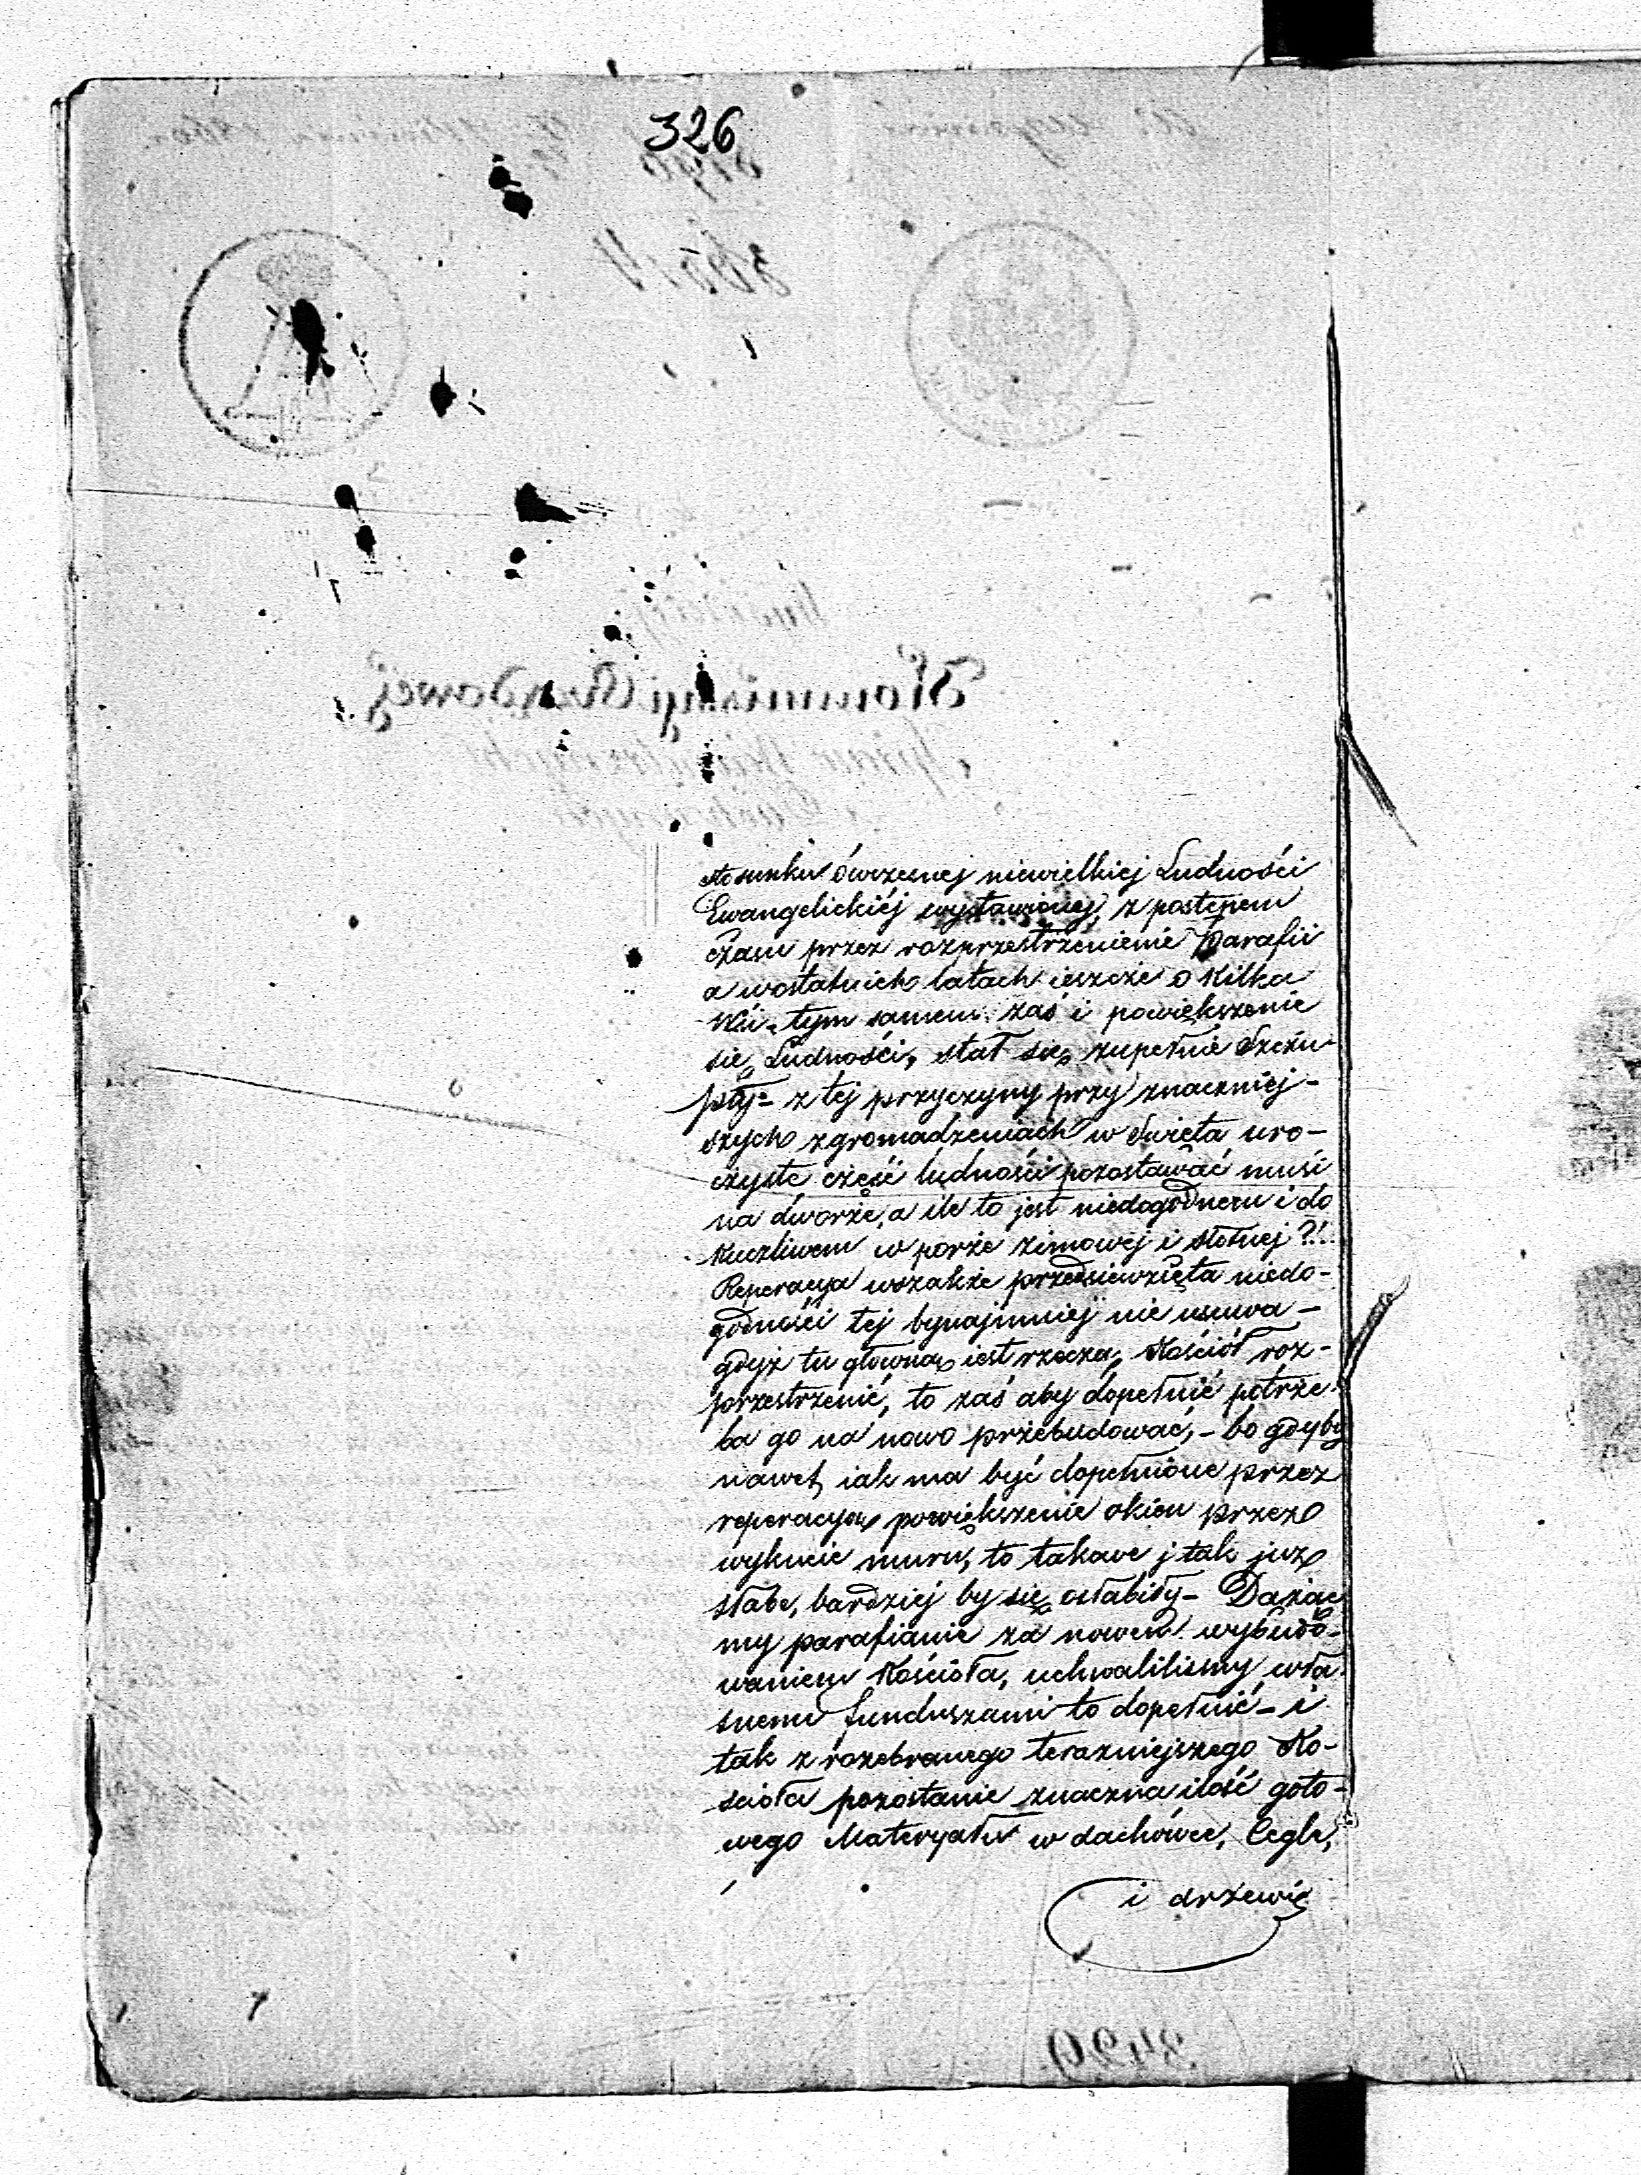 326
stosunku ówczesnej niewielkiej Ludności
Ewangelickiéj wystawionej, z postępem
czasu przez rozprzestrzenienie Parafii
a wostatnich latach ieszcze o kilka
Wsi, tym samem zaś i powiększenie
się Ludności, stał się zupełnie szczu-
pły - z tej przyczyny przy znaczniej-
szych zgromadzeniach w Święta uro-
czyste część ludności pozostawać musi
na dworze, a ile to jest niedogodnem i do
kuczliwem w porze zimowéj i słotnej?!..
Reperacya wszakże przedsięwzięta niedo-
godności tej bynajmniej nie usuwa -
gdyż tu główną iest rzeczą, Kościół roz-
przestrzenić, to zaś aby dopełnić potrze-
ba go na nowo przebudować, - bo gdyby
nawet, iak ma być dopełnione przez
reperacyą powiększenie okien przez
wykucie muru, to takowe j tak juz
słabe, bardziej by się osłabiły - Dążąc
my parafianie za nowem wybudo-
waniem Kościoła, uchwaliliśmy wła-
snemi funduszami to dopełnić - i
tak z rozebranego terazniejszego Ko-
scioła pozostanie znaczna ilość goto-
wego Materyału w dachówce, Cegle,
i drzewie